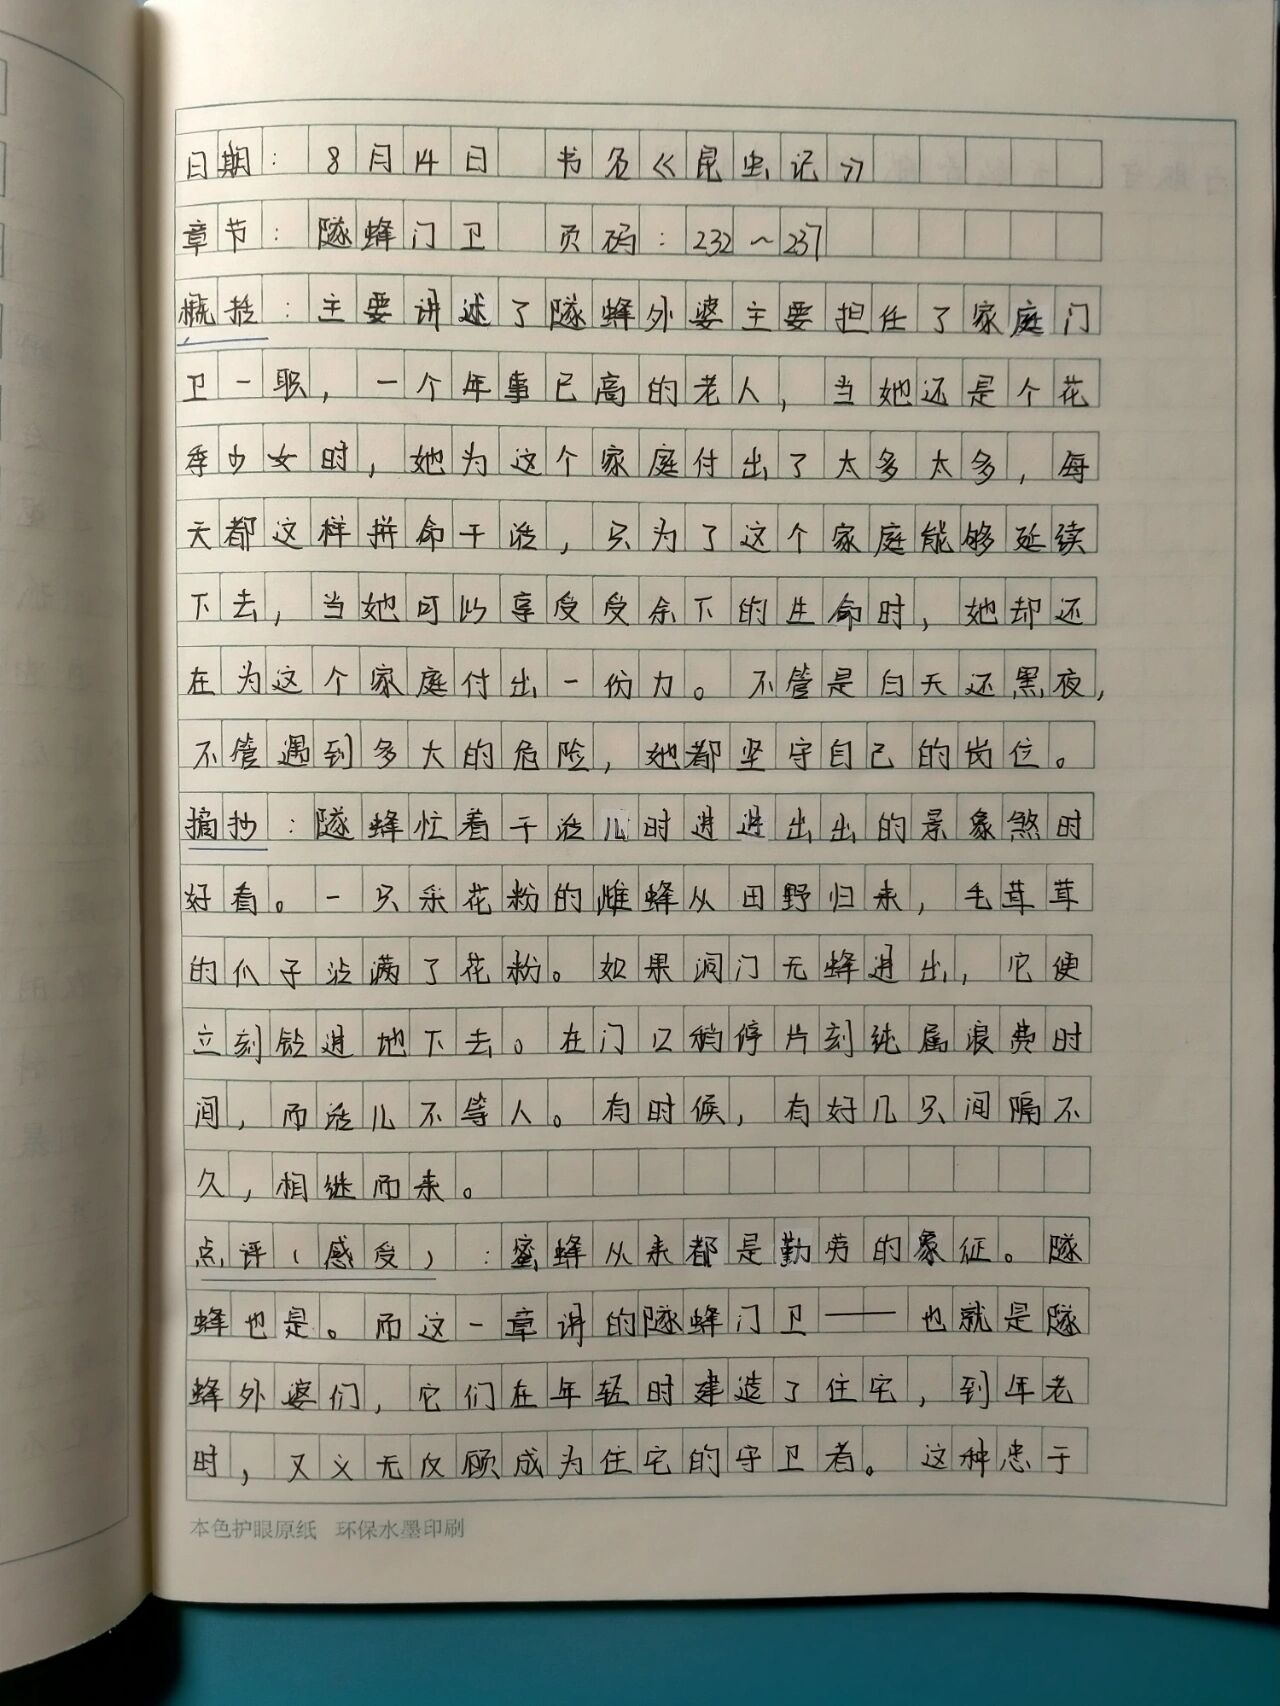 日期：8月14日 书名《昆虫记》
章节：隧蜂门卫 页码：232~237
概括：主要讲述了隧蜂外婆主要担任了家庭门
卫一职，一个年事已高的老人，当她还是个花
季少女时，她为这个家庭付出了太多太多，每
天都这样拼命干活，只为了这个家庭能够延续
下去，当她可以享受受余下的生命时，她却还
在为这个家庭付出一份力。不管是白天还黑夜，
不管遇到多大的危险，她都坚守自己的岗位。
摘抄：隧蜂忙着干活儿时进进出出的景象煞时
好看。一只采花粉的雌蜂从田野归来，毛茸茸
的爪子沾满了花粉。如果洞门无蜂进出，它便
立刻钻进地下去。在门口稍停片刻纯属浪费时
间，而活儿不等人。有时候，有好几只间隔不
久，相继而来。
点评（感受）：蜜蜂从来都是勤劳的象征。隧
蜂也是。而这一章讲的隧蜂门卫——也就是隧
蜂外婆们，它们在年轻时建造了住宅，到年老
时，又义无反顾成为住宅的守卫者。这种忠于
本色护眼原纸 环保水墨印刷